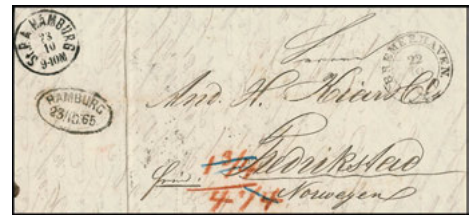 St. P. A. HAMBURG
23
10
9-10M
HAMBURG
23/10.65
BREMERHAVEN
22
Herren
And. H. Kiær & Co
Fredrikstad
Norwegen